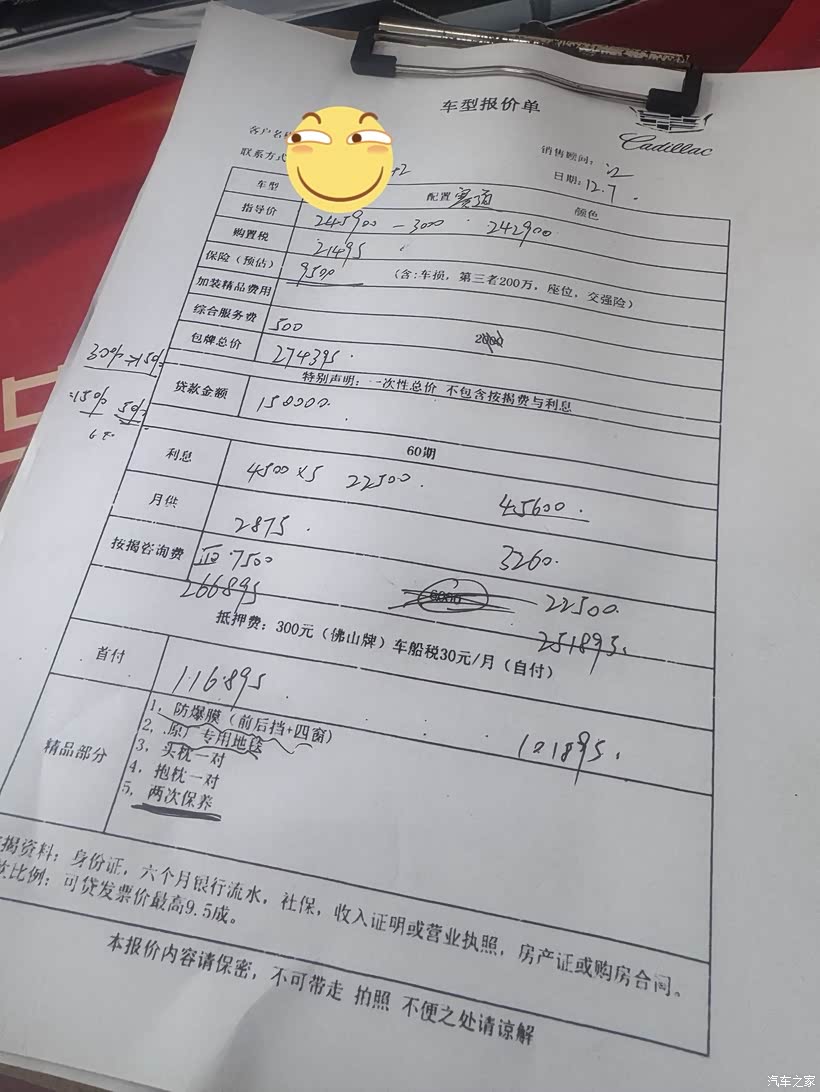 车型报价单
Cadillac
客户名
销售顾问：
联系方式
+2
日期：12.7.
车型
配置 赛道
颜色
指导价 245900 -3000 242900
购置税 21495
保险（预估） 9500 （含：车损，第三者200万，座位，交强险）
加装精品费用
综合服务费 500
包牌总价 274395.
特别声明：一次性总价 不包含按揭费与利息
30%
=150%
贷款金额 150000.
60期
利息 4500×5 22500. 45600.
月供 2875. 3260.
按揭咨询费 7500 22500.
266895 251895.
抵押费：300元（佛山牌）车船税30元/月（自付）
首付 116895 121895.
精品部分
1，防爆膜（前后挡+四窗）
2，原厂专用地毯
3，头枕一对
4，抱枕一对
5，两次保养
揭资料：身份证，六个月银行流水，社保，收入证明或营业执照，房产证或购房合同。
比例：可贷发票价最高9.5成。
本报价内容请保密，不可带走 拍照 不便之处请谅解
汽车之家